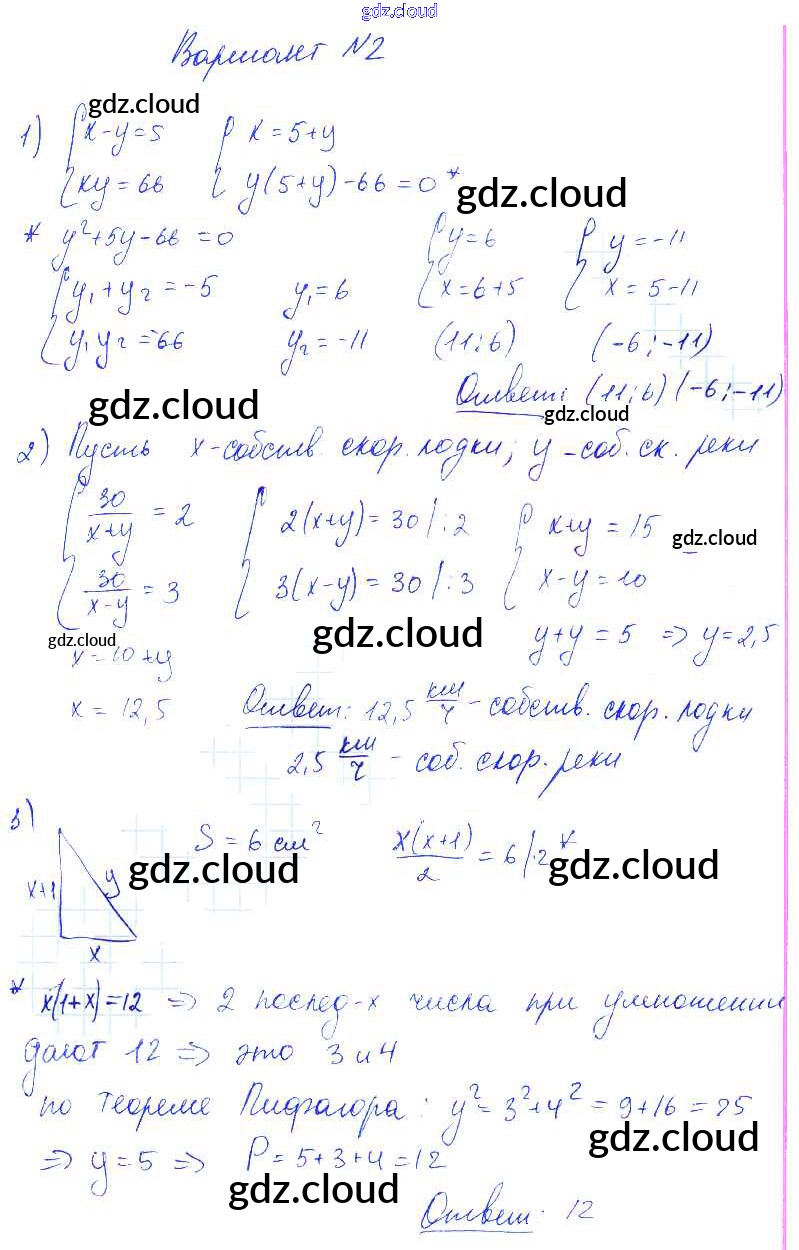 gdz.cloud
Вариант №2
gdz.cloud
1) { x-y=5 { x=5+y
{ xy=66 { y(5+y)-66=0 *
gdz.cloud
* y²+5y-66=0 { y=6 { y=-11
{ y₁+y₂=-5 y₁=6 { x=6+5 { x=5-11
{ y₁y₂=-66 y₂=-11 (11;6) (-6;-11)
gdz.cloud
Ответ: (11;6) (-6;-11)
gdz.cloud
2) Пусть x-собств. скор. лодки; y-соб. ск. реки
{ 30/(x+y) = 2 { 2(x+y)=30 /:2 { x+y=15
gdz.cloud
{ 30/(x-y) = 3 { 3(x-y)=30 /:3 { x-y=10
gdz.cloud
gdz.cloud
x=10+y y+y=5 => y=2,5
x=12,5 Ответ: 12,5 км/ч - собств. скор. лодки
2,5 км/ч - соб. скор. реки
3)
S=6 см² x(x+1)/2 = 6 /·2 *
gdz.cloud
gdz.cloud
x+1 y
x
* x(1+x)=12 => 2 послед-х числа при умножении
дают 12 => это 3 и 4
по теореме Пифагора: y²=3²+4²=9+16=25
gdz.cloud
=> y=5 => P=5+3+4=12
gdz.cloud
Ответ: 12